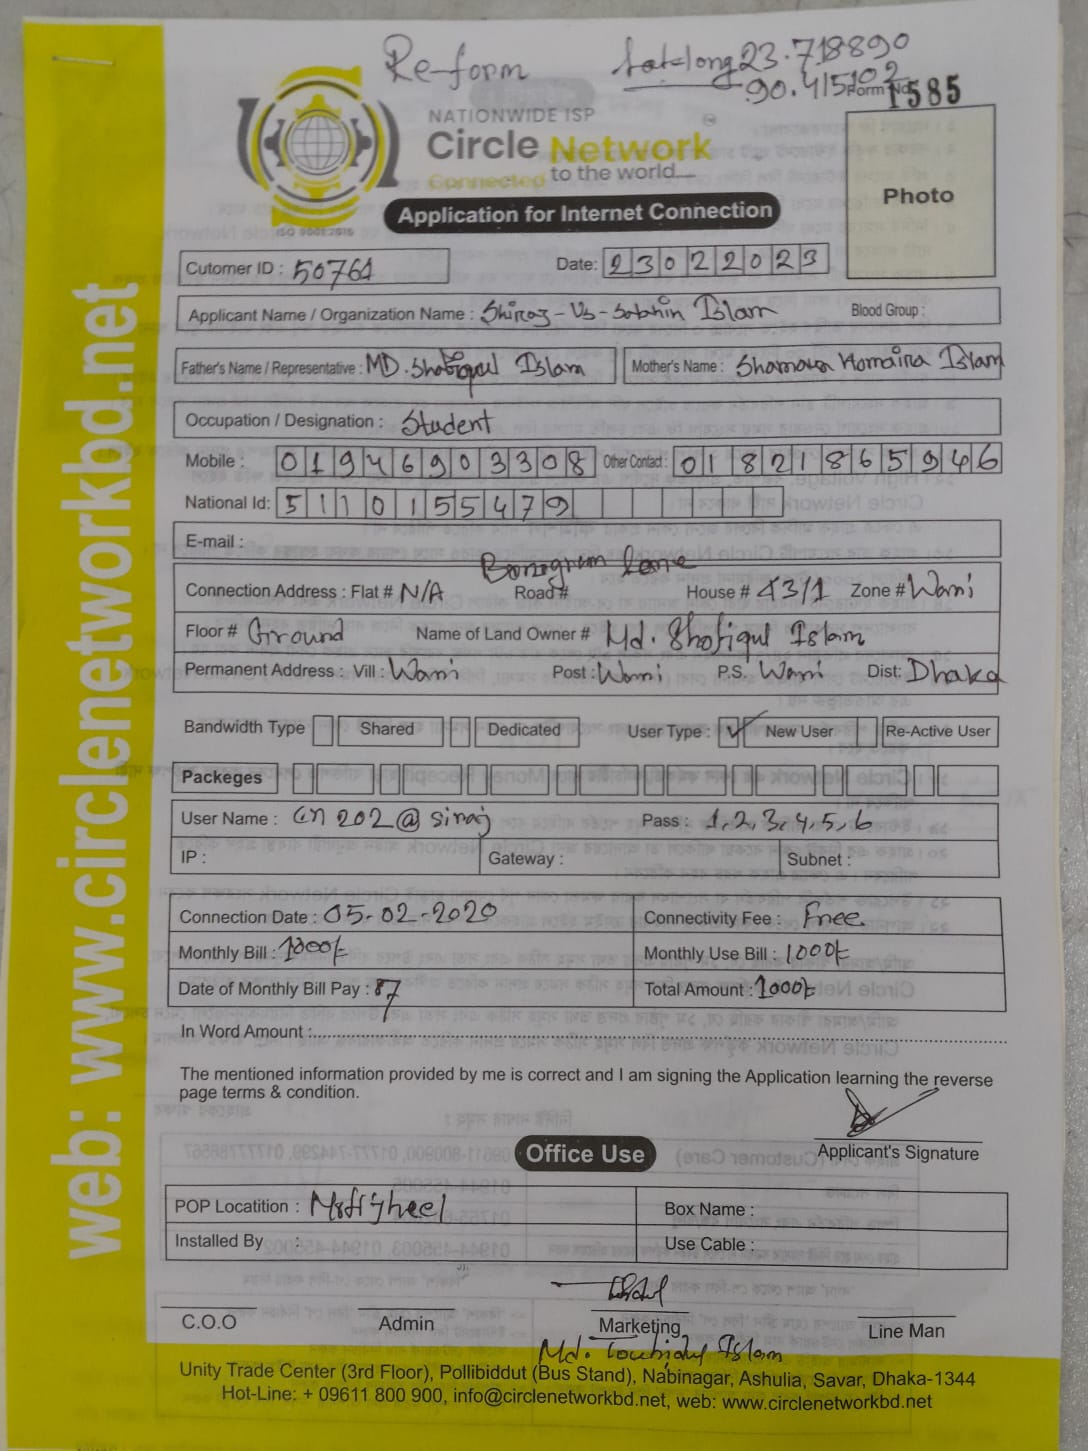 Re-form lat-long 23.718890
90.415102
Form No 1585
NATIONWIDE ISP
Circle Network
Connected to the world....
ISO 9001:2015
Application for Internet Connection
Photo
Cutomer ID : 50761 Date: 23022023
Applicant Name / Organization Name : Shiraz-Us-Sabhin Islam Blood Group :
Father's Name / Representative : MD. Shafiqul Islam Mother's Name : Homaira Islam
Occupation / Designation : Student
Mobile : 01946903308 Other Contact : 01821865946
National Id: 5110155479
E-mail :
Connection Address : Flat # N/A Road# Bonogram lane House # 43/1 Zone # Wari
Floor # Ground Name of Land Owner # Md. Shofiqul Islam
Permanent Address : Vill : Wari Post : Wari P.S. Wari Dist: Dhaka
Bandwidth Type Shared Dedicated User Type : ✓ New User Re-Active User
Packeges
User Name : cn202@siraj Pass : 1,2,3,4,5,6
IP : Gateway : Subnet :
Connection Date : 05-02-2020 Connectivity Fee : Free.
Monthly Bill : 1000/- Monthly Use Bill : 1000/-
Date of Monthly Bill Pay : Total Amount : 1000/-
In Word Amount :
The mentioned information provided by me is correct and I am signing the Application learning the reverse
page terms & condition.
Applicant's Signature
Office Use
POP Locatition : Motijheel Box Name :
Installed By : Use Cable :
C.O.O Admin Marketing Line Man
Md. Touhidul Islam
Unity Trade Center (3rd Floor), Pollibiddut (Bus Stand), Nabinagar, Ashulia, Savar, Dhaka-1344
Hot-Line: + 09611 800 900, info@circlenetworkbd.net, web: www.circlenetworkbd.net
web: www.circlenetworkbd.net